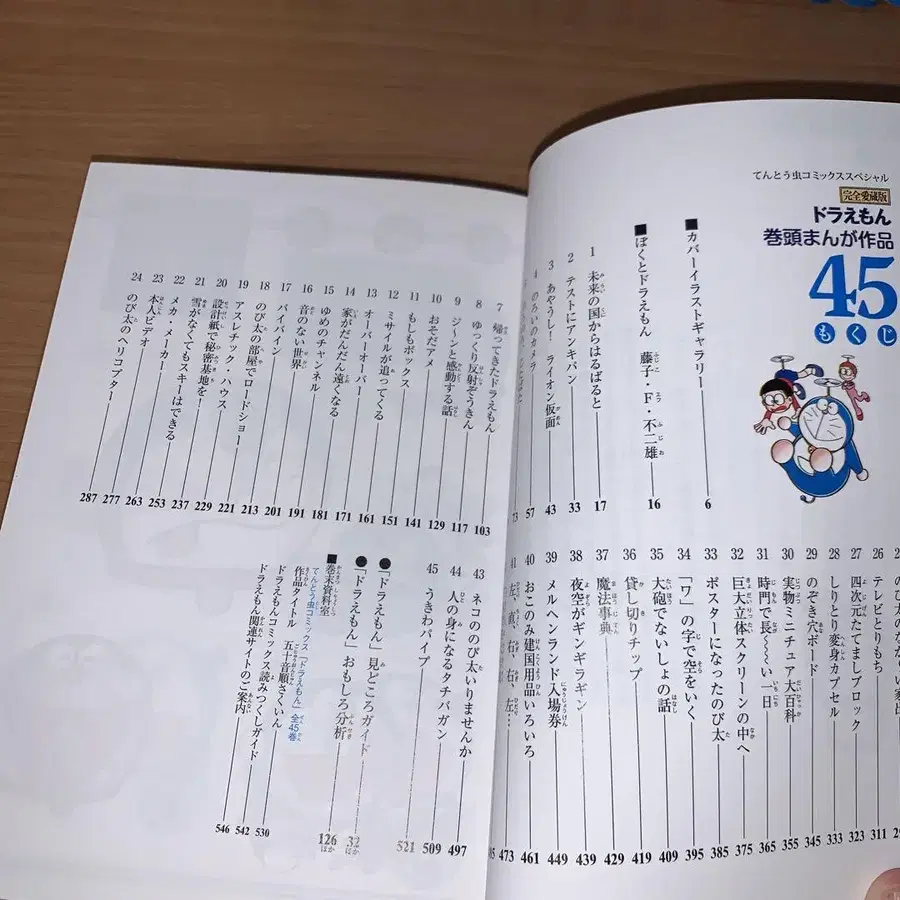 てんとう虫コミックススペシャル
完全愛蔵版
ドラえもん
巻頭まんが作品
45
もくじ
■カバーイラストギャラリー 6
■ぼくとドラえもん 藤子・F・不二雄 16
1 未来の国からはるばると 17
2 テストにアンキパン 33
3 あやうし! ライオン仮面 43
4 のろいのカメラ 57
73
7 帰ってきたドラえもん 103
8 ゆっくり反射ぞうきん 117
9 ジ~ンと感動する話 129
10 おそだアメ 141
11 もしもボックス 151
12 ミサイルが追ってくる 161
13 オーバーオーバー 171
14 家がだんだん遠くなる 181
15 ゆめのチャンネル 191
16 音のない世界 201
17 バイバイン 213
18 のび太の部屋でロードショー 221
19 アスレチック・ハウス 229
20 設計紙で秘密基地を! 237
21 雪がなくてもスキーはできる 253
22 メカ・メーカー 263
23 本人ビデオ 277
24 のび太のヘリコプター 287
26 テレビとりもち 311
27 四次元たてましブロック 323
28 しりとり変身カプセル 333
29 のぞき穴ボード 345
30 実物ミニチュア大百科 355
31 時門で長~~い一日 365
32 巨大立体スクリーンの中へ 375
33 ポスターになったのび太 385
34 「ワ」の字で空をいく 395
35 大砲でないしょの話 409
36 貸し切りチップ 419
37 魔法事典 429
38 夜空がギンギラギン 439
39 メルヘンランド入場券 449
40 おこのみ建国用品いろいろ 461
41 左、直、右、右、左… 473
43 ネコののび太いりませんか 497
44 人の身になるタチバガン 509
45 うきわパイプ 521
●「ドラえもん」見どころガイド 32ほか
●「ドラえもん」おもしろ分析 126ほか
■巻末資料室
てんとう虫コミックス「ドラえもん」全45巻
作品タイトル 五十音順さくいん 530
ドラえもんコミックス読みつくしガイド 542
ドラえもん関連サイトのご案内 546